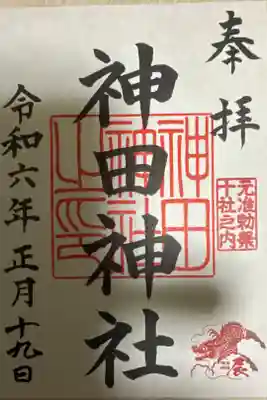 奉拝
元准勅祭
十社之内
辰
神田神社
神田
神社
之印
令和六年 正月十九日